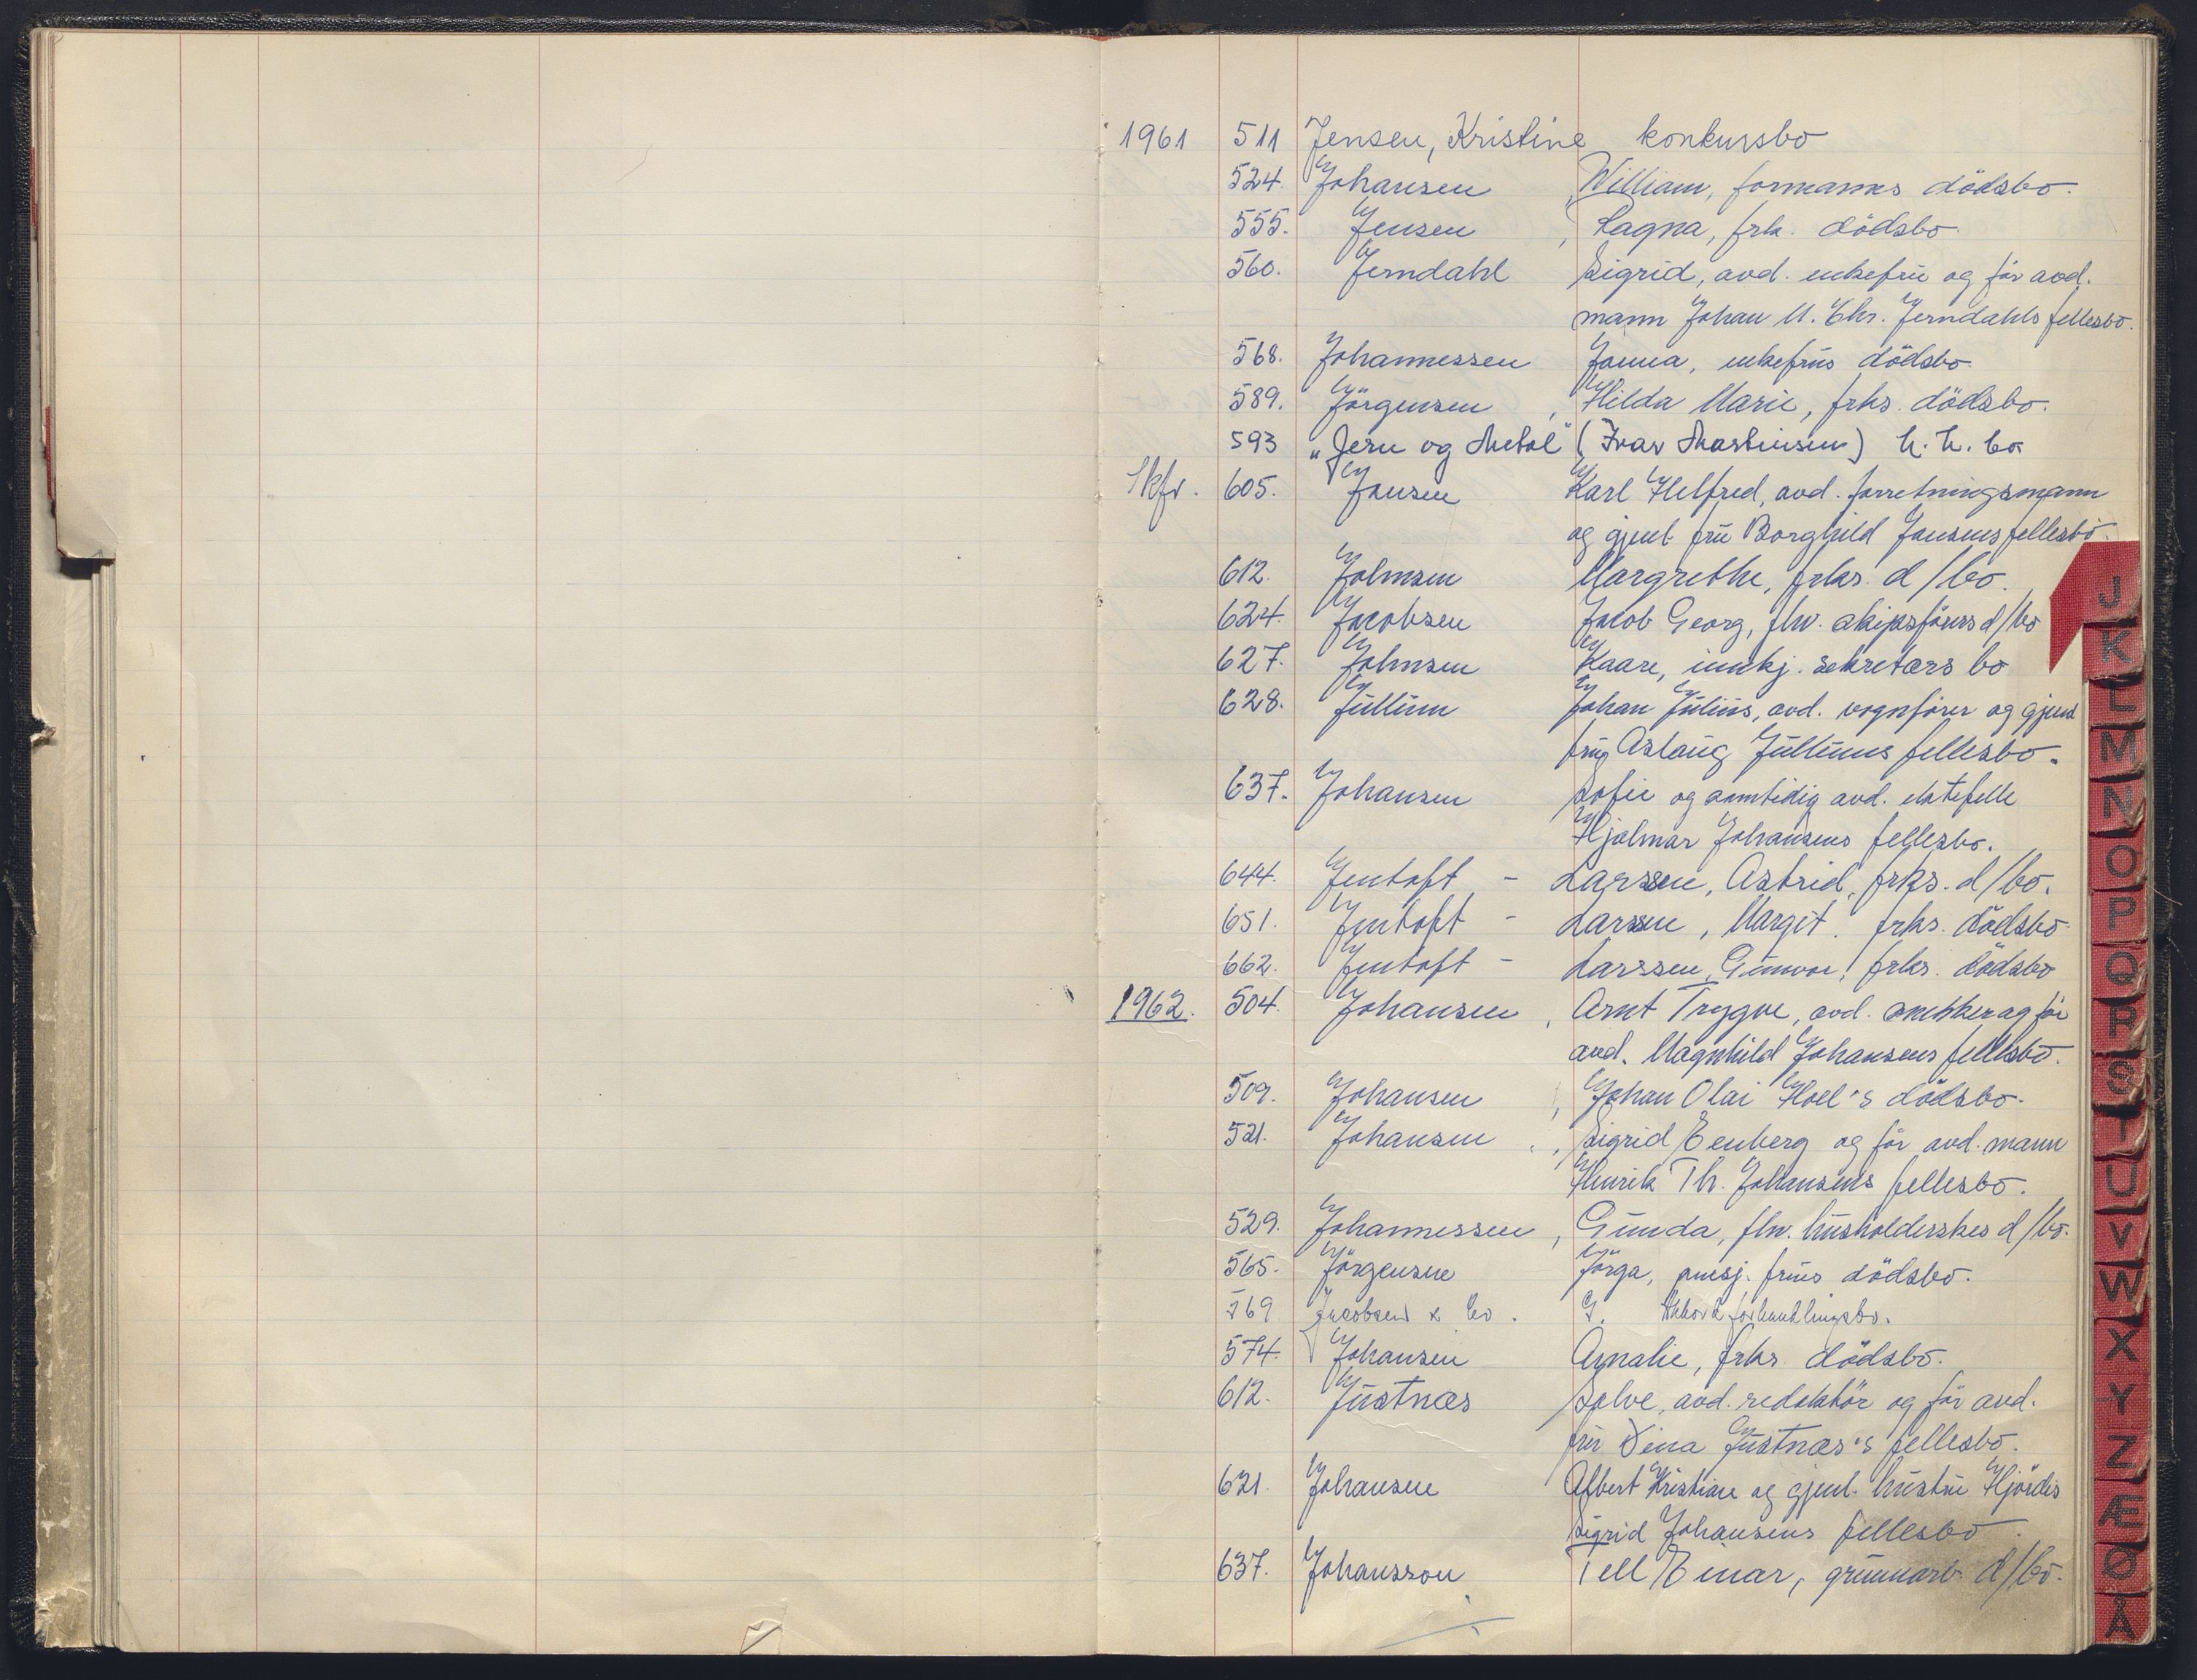 1961 511 Jensen, Kristine konkursbo
524. Johansen , William, formanns dödsbo.
555. Jensen , Ragna, frk. dödsbo
560. Jerndahl Sigrid, avd. enkefru og för avd.
mann Johan M. Chr. Jerndahls fellesbo.
568. Johannessen Janna, enkefrus dödsbo
589. Jörgensen , Hilda Marie, frks. dödsbo.
593 „Jern og Metal" (Ivar Martinsen) h. h. bo
Skfr. 605. Jansen Karl Helfred, avd. forretningsmann
og gjenl. fru Borghild Jansens fellesbo.
612. Johnsen Margrethe, frks. d/bo.
624. Jacobsen Jacob Georg, fhv. skipsförers d/bo
627. Johnsen Kaare, innkj. sekretærs bo
628. Jullum Johan Julius, avd. vognförer og gjenl
frue Aslaug Jullums fellesbo.
637. Johansen Sofie og samtidig avd. ektefelle
Hjalmar Johansens fellesbo.
644. Jentoft - Larssen, Astrid, frks. d/bo.
651. Jentoft - Larssen, Margit. frks. dödsbo
662. Jentoft - Larssen, Gunvor, frks. dödsbo
1962. 504. Johansen , Arnt Trygve, avd. og för
avd. Magnhild Johansens fellesbo.
509. Johansen , Johan Olai Hoel's dödsbo.
521. Johansen , Sigrid Eenberg og för avd. mann
Henrik Th. Johansens fellesbo.
529. Johannessen , Gunda, fhv. husholderskes d/bo.
565. Jörgensen Jörga, pensj. frues dödsbo.
569 Jacobsen & Co. G. Akkordforhandlingsbo.
574. Johansen Amalie, frks. dödsbo.
612. Justnæs Solve, avd. redaktör og för avd.
fru Dina Justnæs's fellesbo.
621. Johansen Albert Kristian og gjenl. hustru Hjördis
Sigrid Johansens fellesbo.
637. Johansson Tell Einar, grunnarb. d/bo.
J
K
L
M
N
O
P
Q
R
S
T
U
V
W
X
Y
Z
Æ
Ø
Å